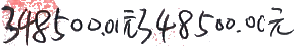 348500.00元348500.00元